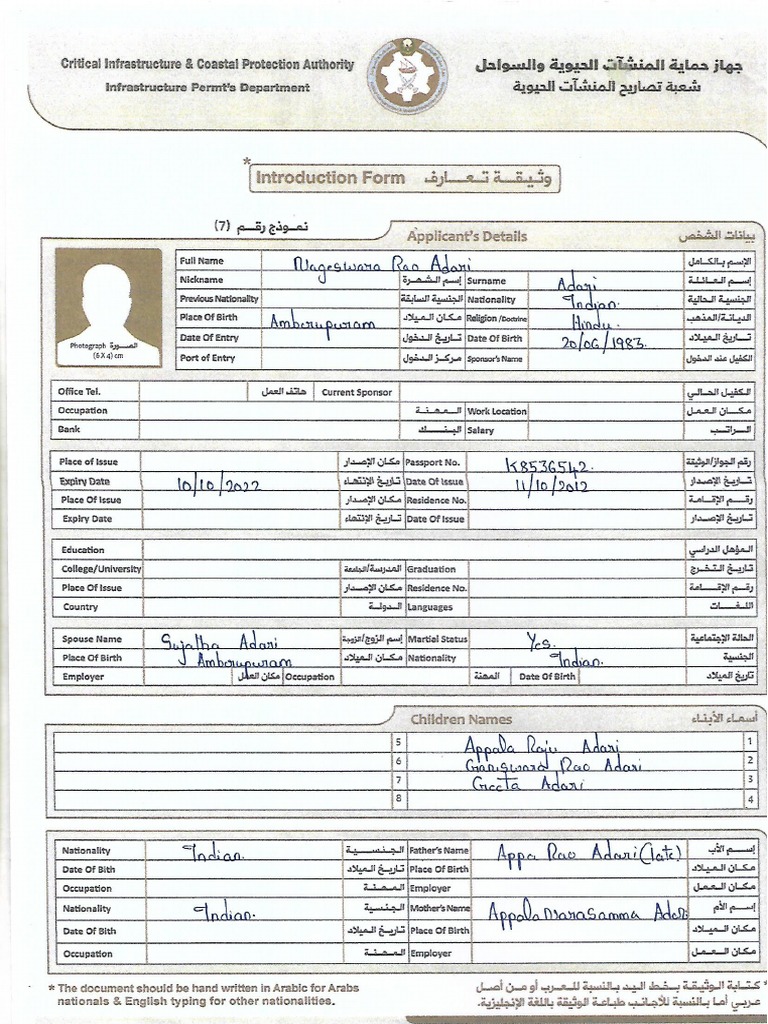 Critical Infrastructure & Coastal Protection Authority جهاز حماية المنشآت الحيوية والسواحل
Infrastructure Permt's Department شعبة تصاريح المنشآت الحيوية
* Introduction Form وثيقة تعارف
نموذج رقم (7) Applicant's Details بيانات الشخص
Full Name Nageswara Rao Adari الإسم بالكامل
Nickname إسم الشهرة Surname Adari إسم العائلة
Previous Nationality الجنسية السابقة Nationality Indian. الجنسية الحالية
Place Of Birth Amberupuram مكان الميلاد Religion/Doctrine Hindu. الديانة/المذهب
Date Of Entry تاريخ الدخول Date Of Birth 20/06/1983. تاريخ الميلاد
Port of Entry مركز الدخول Sponsor's Name الكفيل عند الدخول
Photograph الصورة
(6 X 4) cm
Office Tel. هاتف العمل Current Sponsor الكفيل الحالي
Occupation المهنة Work Location مكان العمل
Bank البنك Salary الراتب
Place of Issue مكان الإصدار Passport No. K8536542. رقم الجواز/الوثيقة
Expiry Date 10/10/2022 تاريخ الإنتهاء Date Of Issue 11/10/2012 تاريخ الإصدار
Place Of Issue مكان الإصدار Residence No. رقم الإقامة
Expiry Date تاريخ الإنتهاء Date Of Issue تاريخ الإصدار
Education المؤهل الدراسي
College/University المدرسة/الجامعة Graduation تاريخ التخرج
Place Of Issue مكان الإصدار Residence No. رقم الإقامة
Country الدولة Languages اللغات
Spouse Name Sujatha Adari إسم الزوج/الزوجة Martial Status Yes. الحالة الإجتماعية
Place Of Birth Amberupuram مكان الميلاد Nationality Indian. الجنسية
Employer مكان العمل Occupation المهنة Date Of Birth تاريخ الميلاد
Children Names أسماء الأبناء
5 Appala Raju Adari 1
6 Ganiswara Rao Adari 2
7 Geeta Adari 3
8 4
Nationality Indian. الجنسية Father's Name Appa Rao Adari (late) إسم الأب
Date Of Bith تاريخ الميلاد Place Of Birth مكان الميلاد
Occupation المهنة Employer مكان العمل
Nationality Indian. الجنسية Mother's Name Appalanarasamma Adari إسم الأم
Date Of Birth تاريخ الميلاد Place Of Birth مكان الميلاد
Occupation المهنة Employer مكان العمل
* The document should be hand written in Arabic for Arabs * كتابة الوثيقة بخط اليد بالنسبة للعرب أو من أصل
nationals & English typing for other nationalities. عربي أما بالنسبة للأجانب طباعة الوثيقة باللغة الإنجليزية.